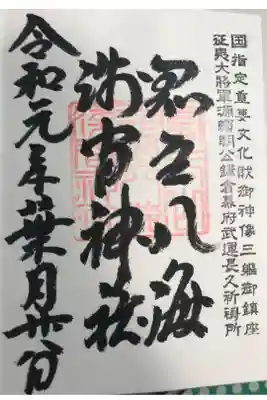 国指定重要文化財御神像三躯御鎮座
征夷大將軍源頼朝公鎌倉幕府武運長久祈禱所
忍野八海
浅間神社
令和元年葉月廿日